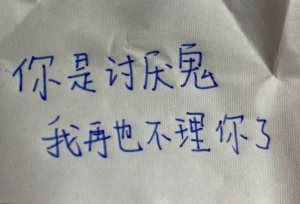 你是讨厌鬼
我再也不理你了